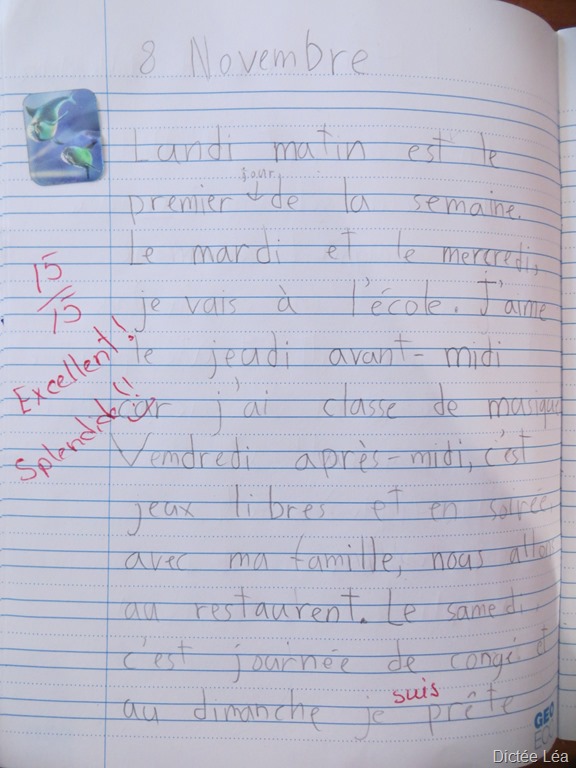 8 Novembre
Lundi matin est le
jour
premier ↓ de la semaine.
Le mardi et le mercredi,
15
15
je vais à l'école. J'aime
Excellent!
le jeudi avant-midi
Splendide!!
car j'ai classe de musique
Vemdredi après-midi, c'est
jeux libres et en soirée,
avec ma famille, nous allons
au restaurent. Le samedi,
c'est journée de congé et
suis
au dimanche je prête
GEO
Dictée Léa